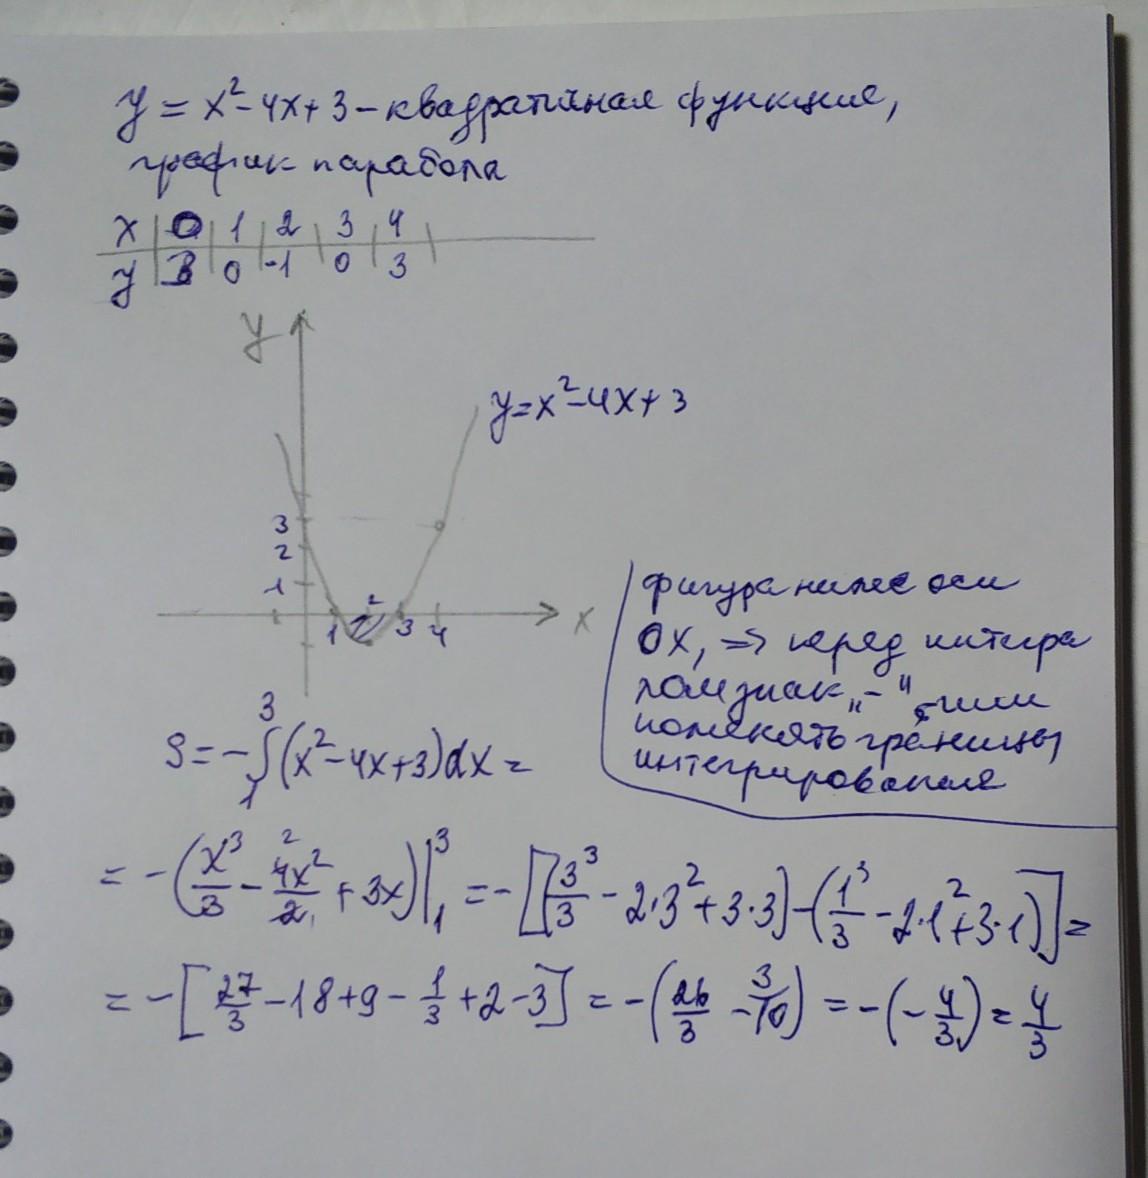 y = x² - 4x + 3 - квадратичная функция,
график парабола
x | 0 | 1 | 2 | 3 | 4 |
y | 3 | 0 | -1 | 0 | 3
y
y = x² - 4x + 3
3
2
1
1 2 3 4 x
фигура ниже оси
OX, => перед интегра
лом знак „-" или
поменять границы
интегрирования
S = -∫₁³ (x² - 4x + 3)dx =
= -(x³/3 - 4x²/2 + 3x)|₁³ = -[(3³/3 - 2·3² + 3·3) - (1³/3 - 2·1² + 3·1)] =
= -[27/3 - 18 + 9 - 1/3 + 2 - 3] = -(26/3 - 10) = -(-4/3) = 4/3